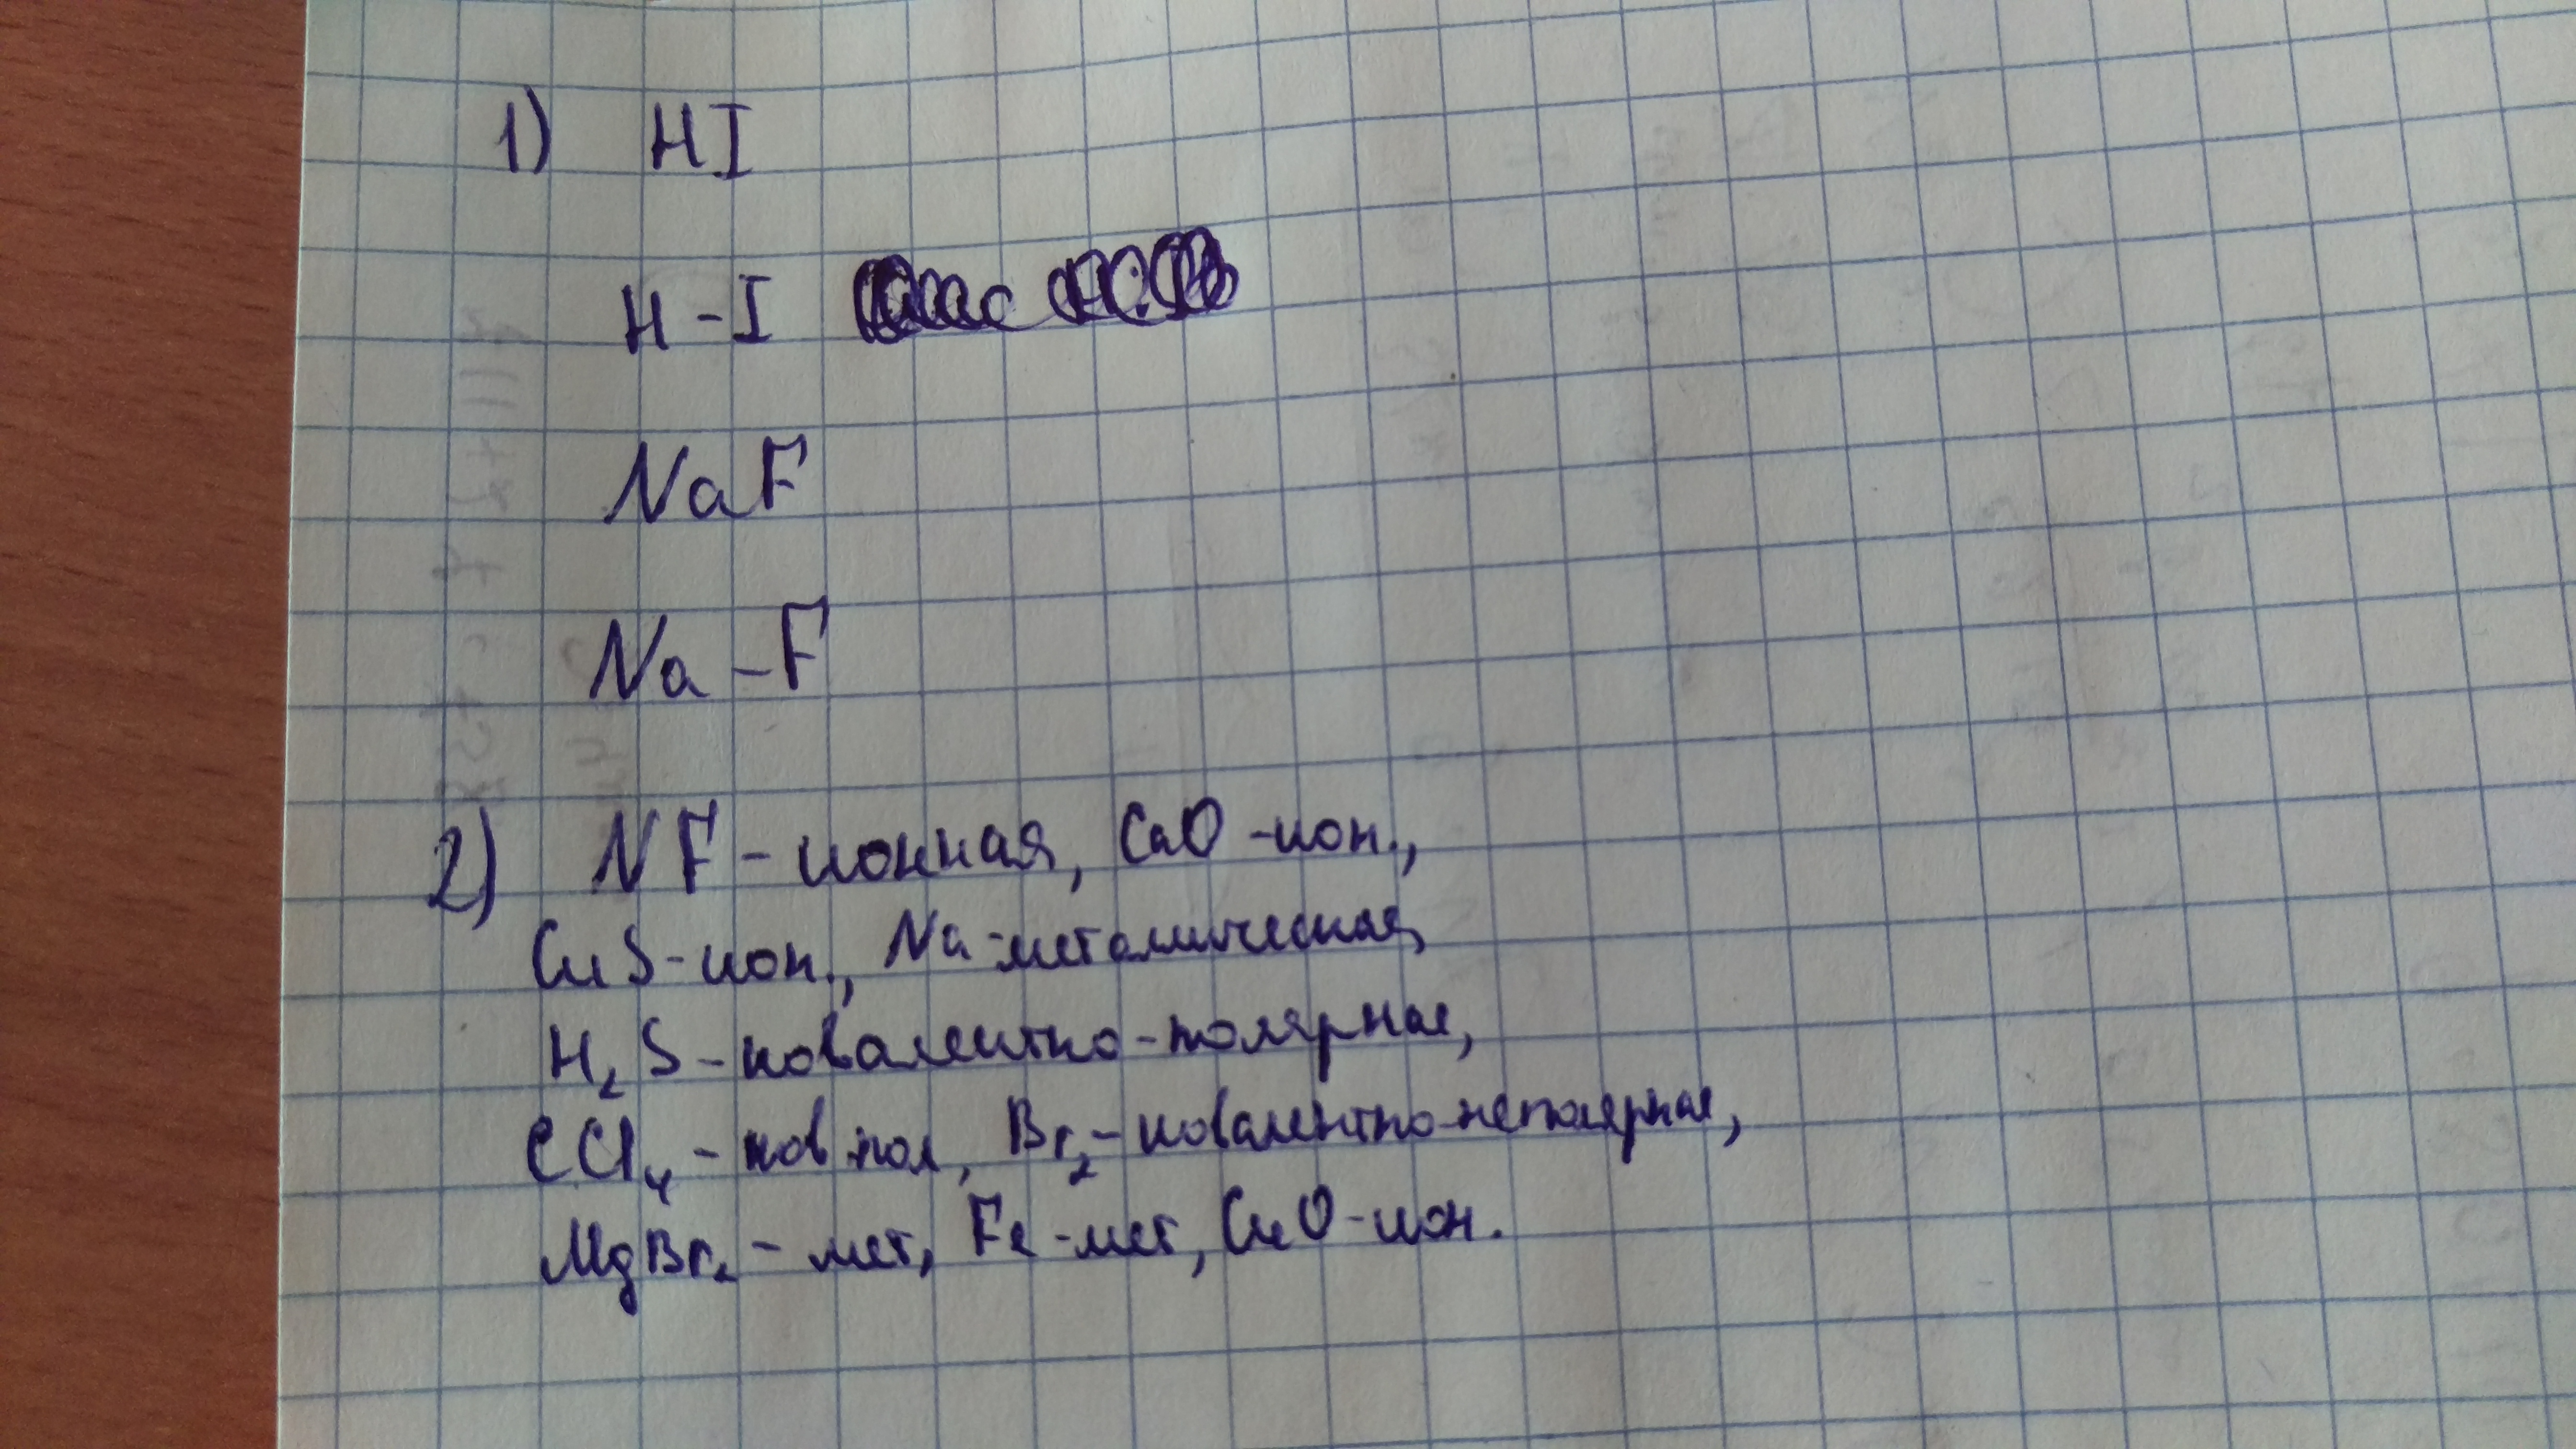 1) HI
H-I
NaF
Na-F
2) NF - ионная, CaO -ион.,
CuS-ион., Na-металическая,
H₂S-ковалентно-полярная,
CCl₄ - ков пол, Br₂- ковалентно-неполярная,
MgBr₂ - мет, Fe-мет, CuO-ион.